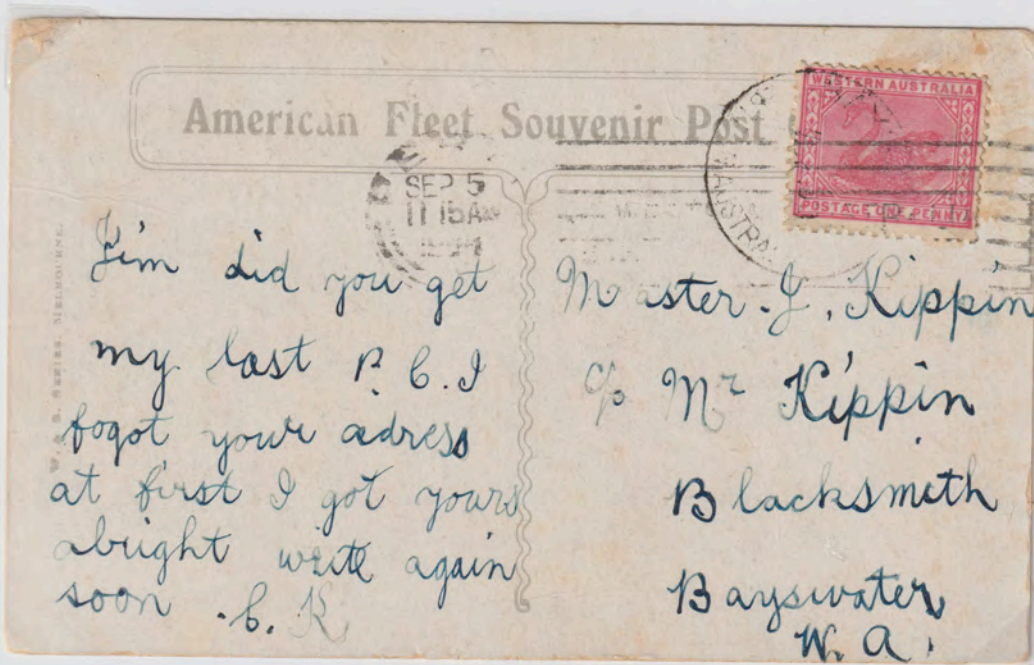 American Fleet Souvenir Post
WESTERN AUSTRALIA
POSTAGE ONE PENNY
SEP 5
11 15 AM
W. & B. SERIES, MELBOURNE.
Jim did you get
my last P. C. I
fogot your adress
at first I got yours
abright write again
soon . C. K
Master . J. Kippin
c/o Mr Kippin
Blacksmith
Bayswater
W. A.